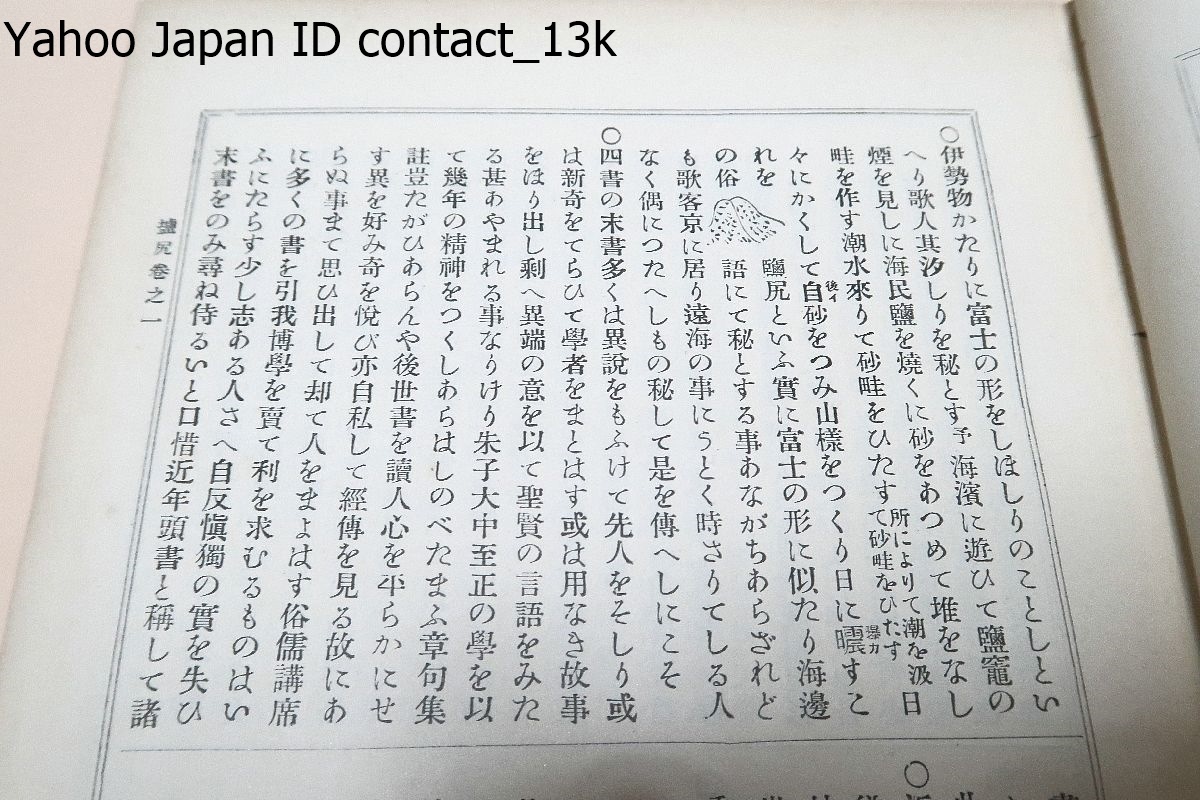 Yahoo Japan ID contact_13k
○伊勢物かたりに富士の形をしほしりのことしとい
へり歌人其汐しりを秘とす予海濱に遊ひて鹽竈の
煙を見しに海民鹽を燒くに砂をあつめて堆をなし
畦を作す潮水來りて砂畦をひたす所によりて潮を汲て砂畦をひたす日
々にかくして自後イ砂をつみ山樣をつくり日に曝カすこ
れを鹽尻といふ實に富士の形に似たり海邊
の俗語にて秘とする事あながちあらざれど
も歌客京に居り遠海の事にうとく時さりてしる人
なく偶につたへしもの秘して是を傳へしにこそ
○四書の末書多くは異說をもふけて先人をそしり或
は新奇をてらひて學者をまとはす或は用なき故事
をほり出し剩へ異端の意を以て聖賢の言語をみた
る甚あやまれる事なりけり朱子大中至正の學を以
て幾年の精神をつくしあらはしのべたまふ章句集
註豈たがひあらんや後世書を讀人心を平らかにせ
す異を好み奇を悅び亦自私して經傳を見る故にあ
らぬ事まて思ひ出して却て人をまよはす俗儒講席
に多くの書を引我博學を賣て利を求むるものはい
ふにたらす少し志ある人さへ自反愼獨の實を失ひ
末書をのみ尋ね侍るいと口惜近年頭書と稱して諸
尻卷之一
○